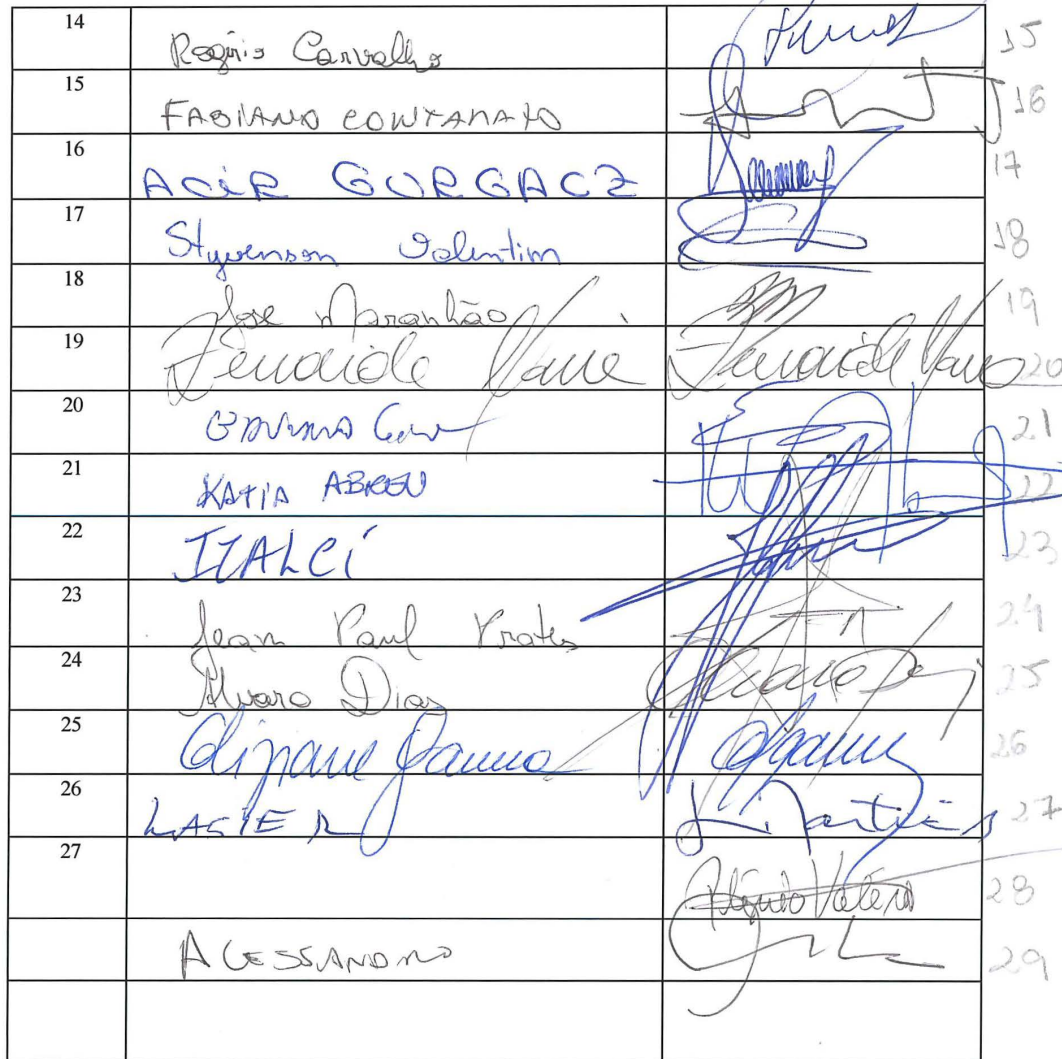 14 Rogério Carvalho 15
15 FABIANO CONTARATO 16
16 ACIR GURGACZ 17
17 Styvenson Valentim 18
18 José Maranhão 19
19 Zenaide Maia Zenaide Maia 20
20 21
21 KATIA ABREU 22
22 IZALCI 23
23 Jean Paul Prates 24
24 Alvaro Dias Alvaro Dias 25
25 Eliziane Gama 26
26 LASIER L. Martins 27
27 Plínio Valério 28
ALESSANDRO 29